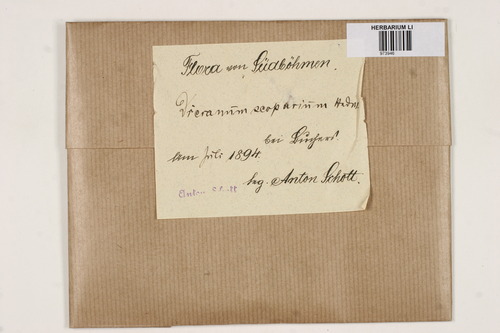 HERBARIUM LI
Flora von Südböhmen.
Dicranum scoparium Hedw.
bei Buchers
Am Juli 1894.
leg. Anton Schott.
Anton Schott